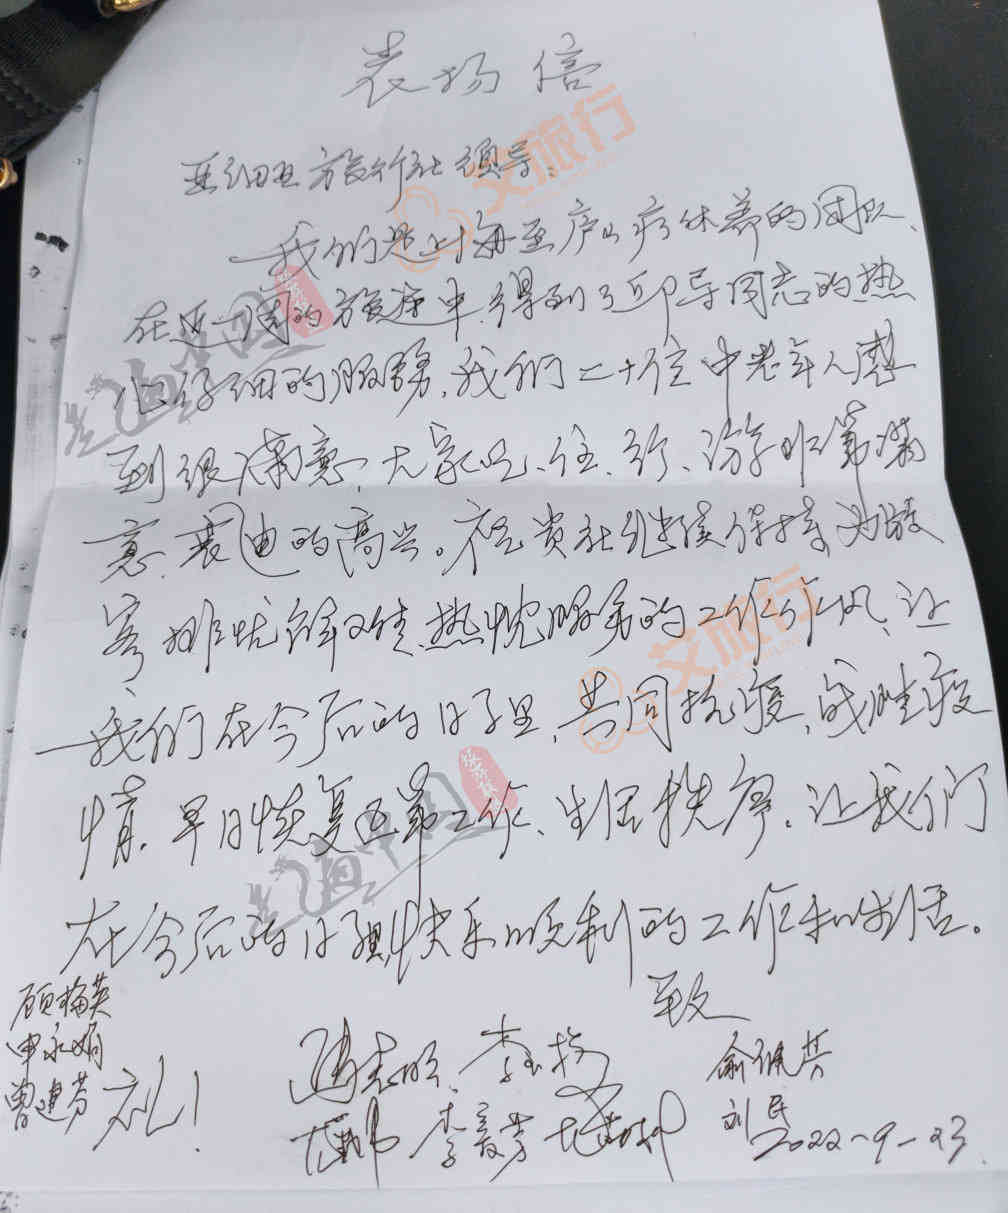 表扬信
亚细亚旅行社领导:
我们是上海至庐山疗休养的团队、
在这一周的旅途中、得到了邱导同志的热
心仔细的服务,我们二十位中老年人感
到很满意、大家吃、住、行、游非常满
意、衷由的高兴。祝贵社继续保持为游
客排忧解难、热忱服务的工作作风、让
我们在今后的日子里,共同抗疫,战胜疫
情,早日恢复正常工作、生活秩序。让我们
在今后的日子里快乐顺利的工作和生活。
致
礼!
顾梅英
申永娟
曾建芬
刘民
2022-9-23
艾旅行
艾旅行